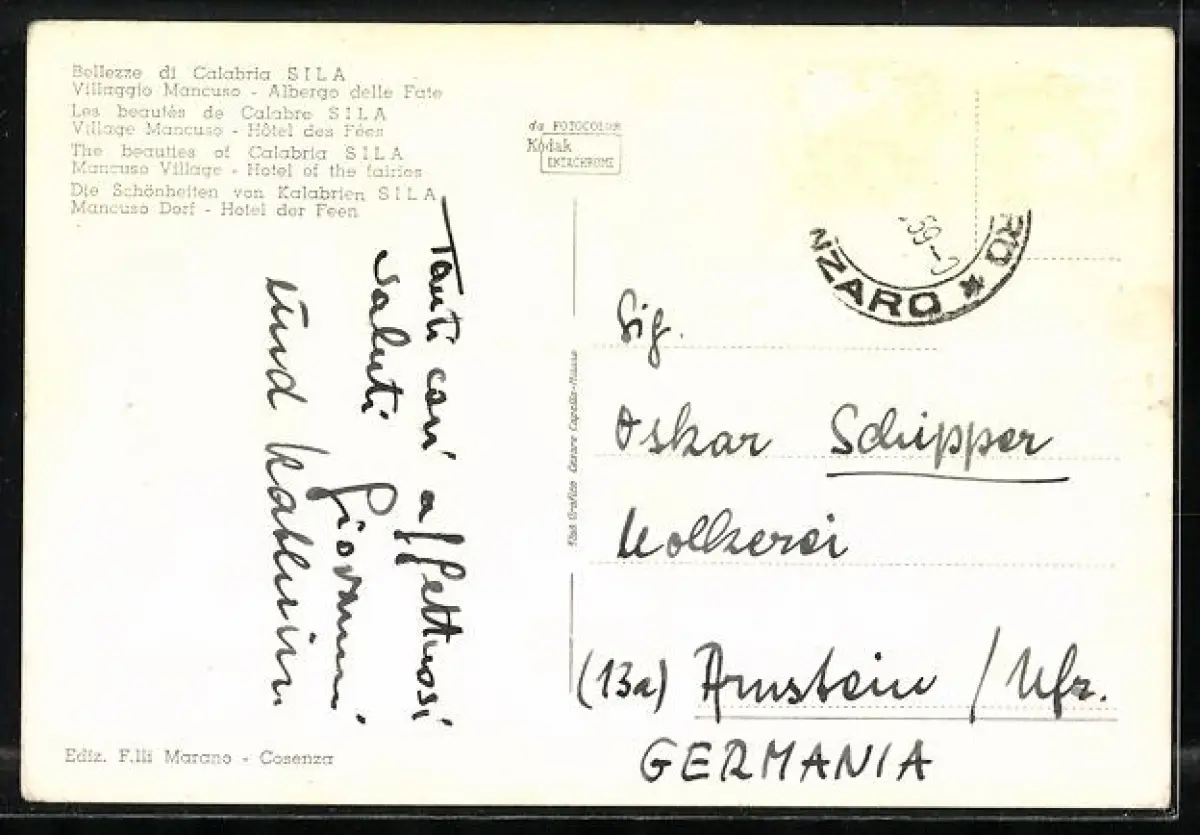 Bellezze di Calabria SILA
Villaggio Mancuso - Albergo delle Fate
Les beautés de Calabre SILA
Village Mancuso - Hôtel des Fées
The beauties of Calabria SILA
Mancuso Village - Hotel of the fairies
Die Schönheiten von Kalabrien SILA
Mancuso Dorf - Hotel der Feen
da FOTOCOLOR
Kodak
EKTACHROME
Tanti cari affettuosi
saluti Giovanni
und Kathrin
NZARO * RO
Sig.
Oskar Schipper
Molkerei
(13a) Arnstein / Ufr.
GERMANIA
Cesare Capello-Milano
Ediz. F.lli Marano - Cosenza